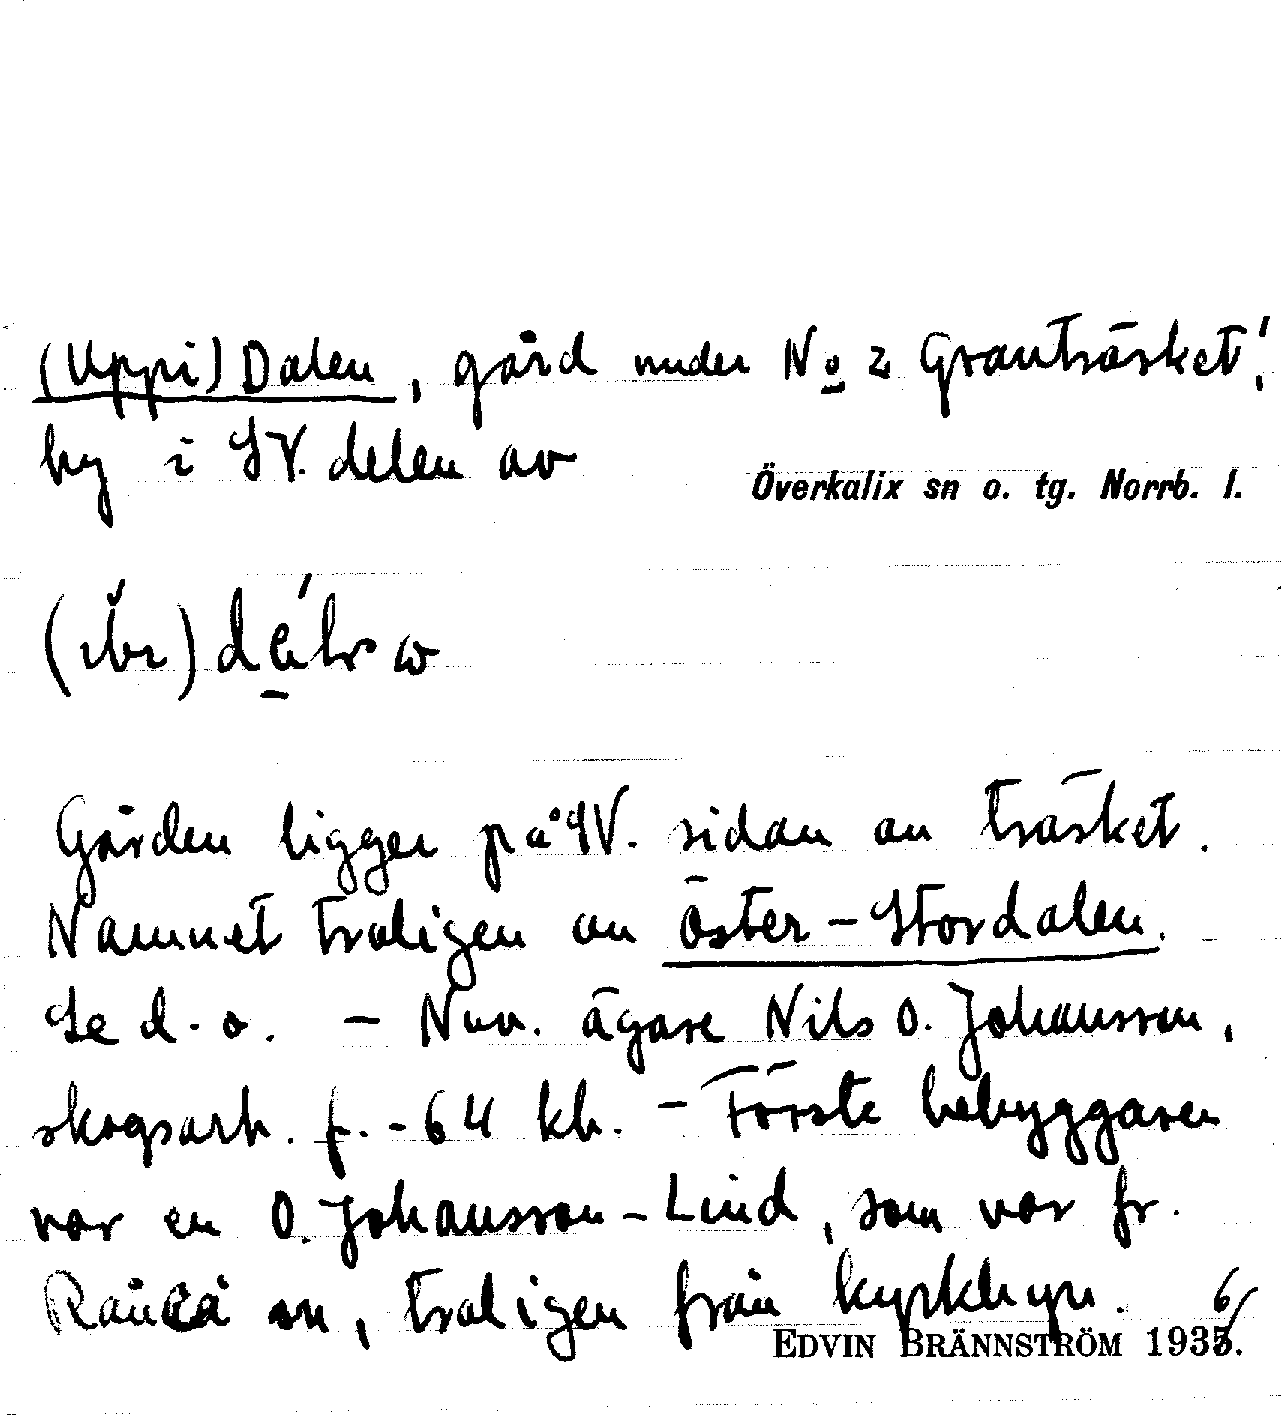 (Uppi) Dalen, gård under No 2 Granträsket,
by i SV. delen av
Överkalix sn o. tg. Norrb. l.
Gården ligger på SV. sidan av träsket.
Namnet troligen av Öster-Stordalen.
Se d. o. – Nuv. ägare Nils O. Johansson,
skogsarb. f. -64 kb. – Förste bebyggaren
var en O. Johansson-Lind, som var fr.
Råneå sn, troligen från kyrkbyn.
EDVIN BRÄNNSTRÖM 1936.